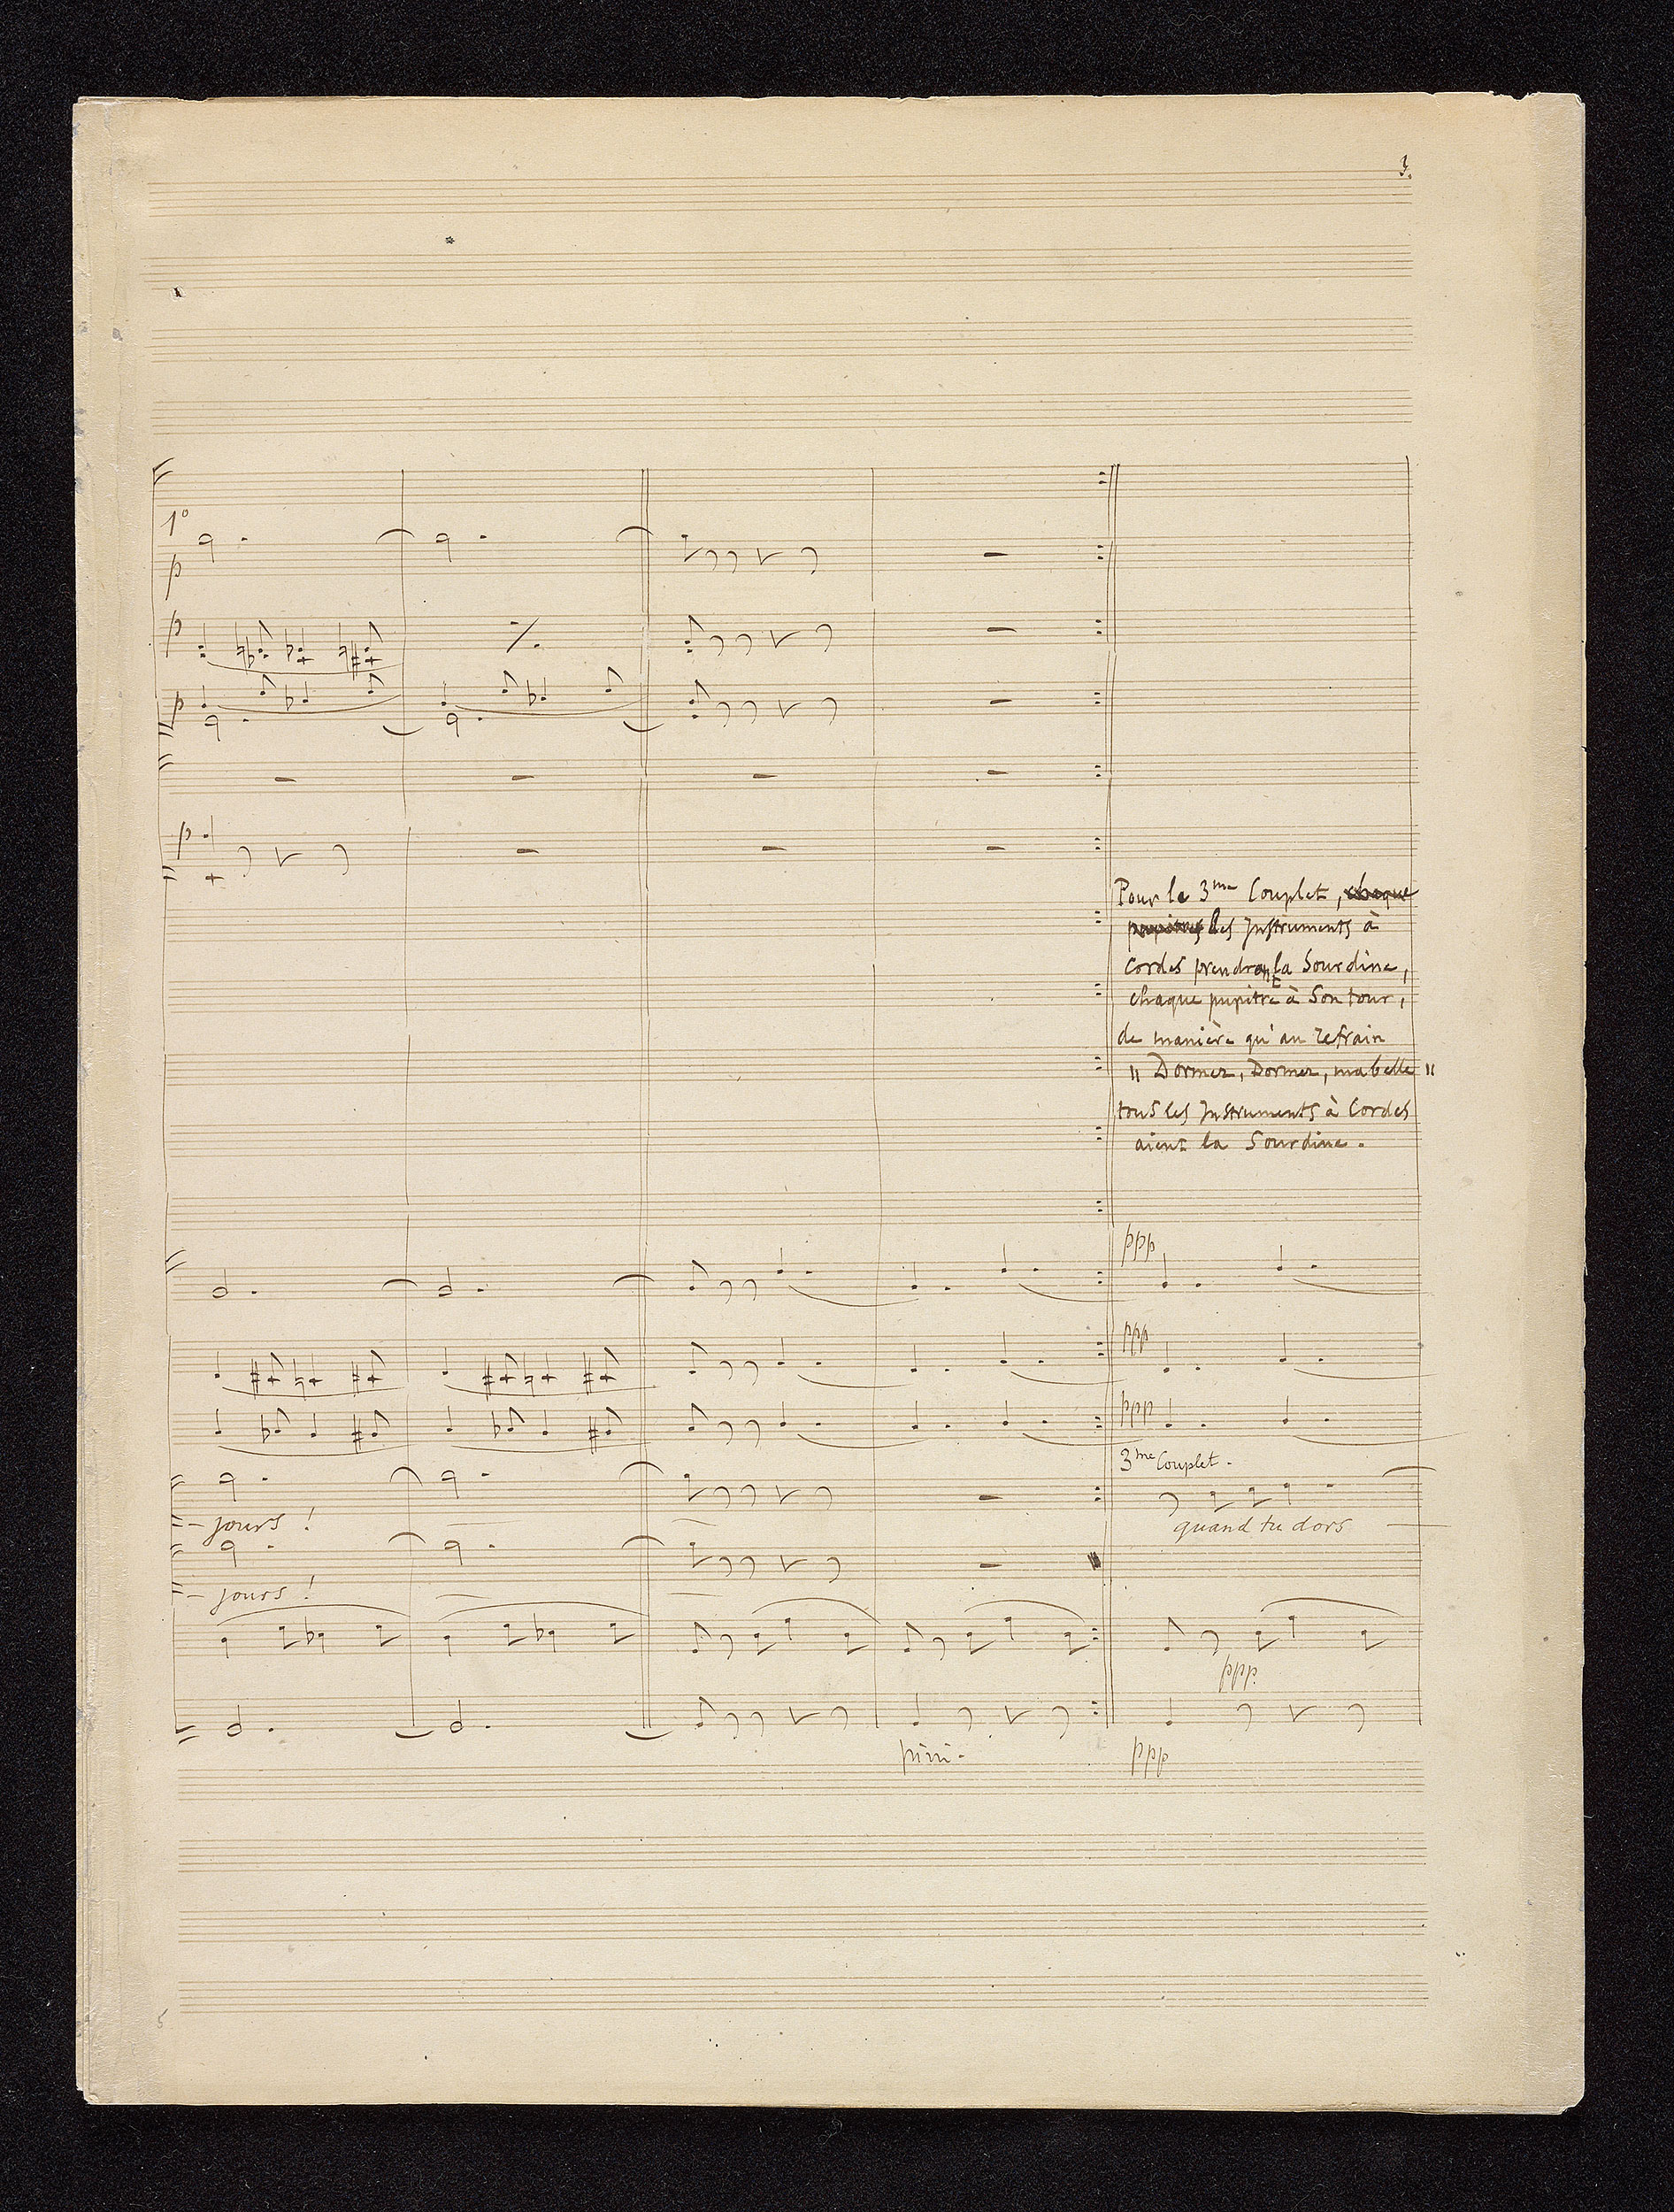 3.
1º
p
p
p
p
Pour le 3me Couplet, chaque
pupitres les Instruments à
Cordes prendront la Sourdine,
chaque pupitre à Son tour,
de manière qu'au refrain
" Dormez, Dormez, ma belle "
tous les Instruments à Cordes
aient la Sourdine.
ppp
ppp
ppp
3me Couplet.
- jours !
quand tu dors
- jours !
ppp.
ppp
5